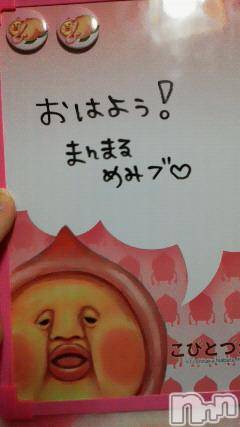 おはよう!
まんまる
めみブ♡
こひとづ